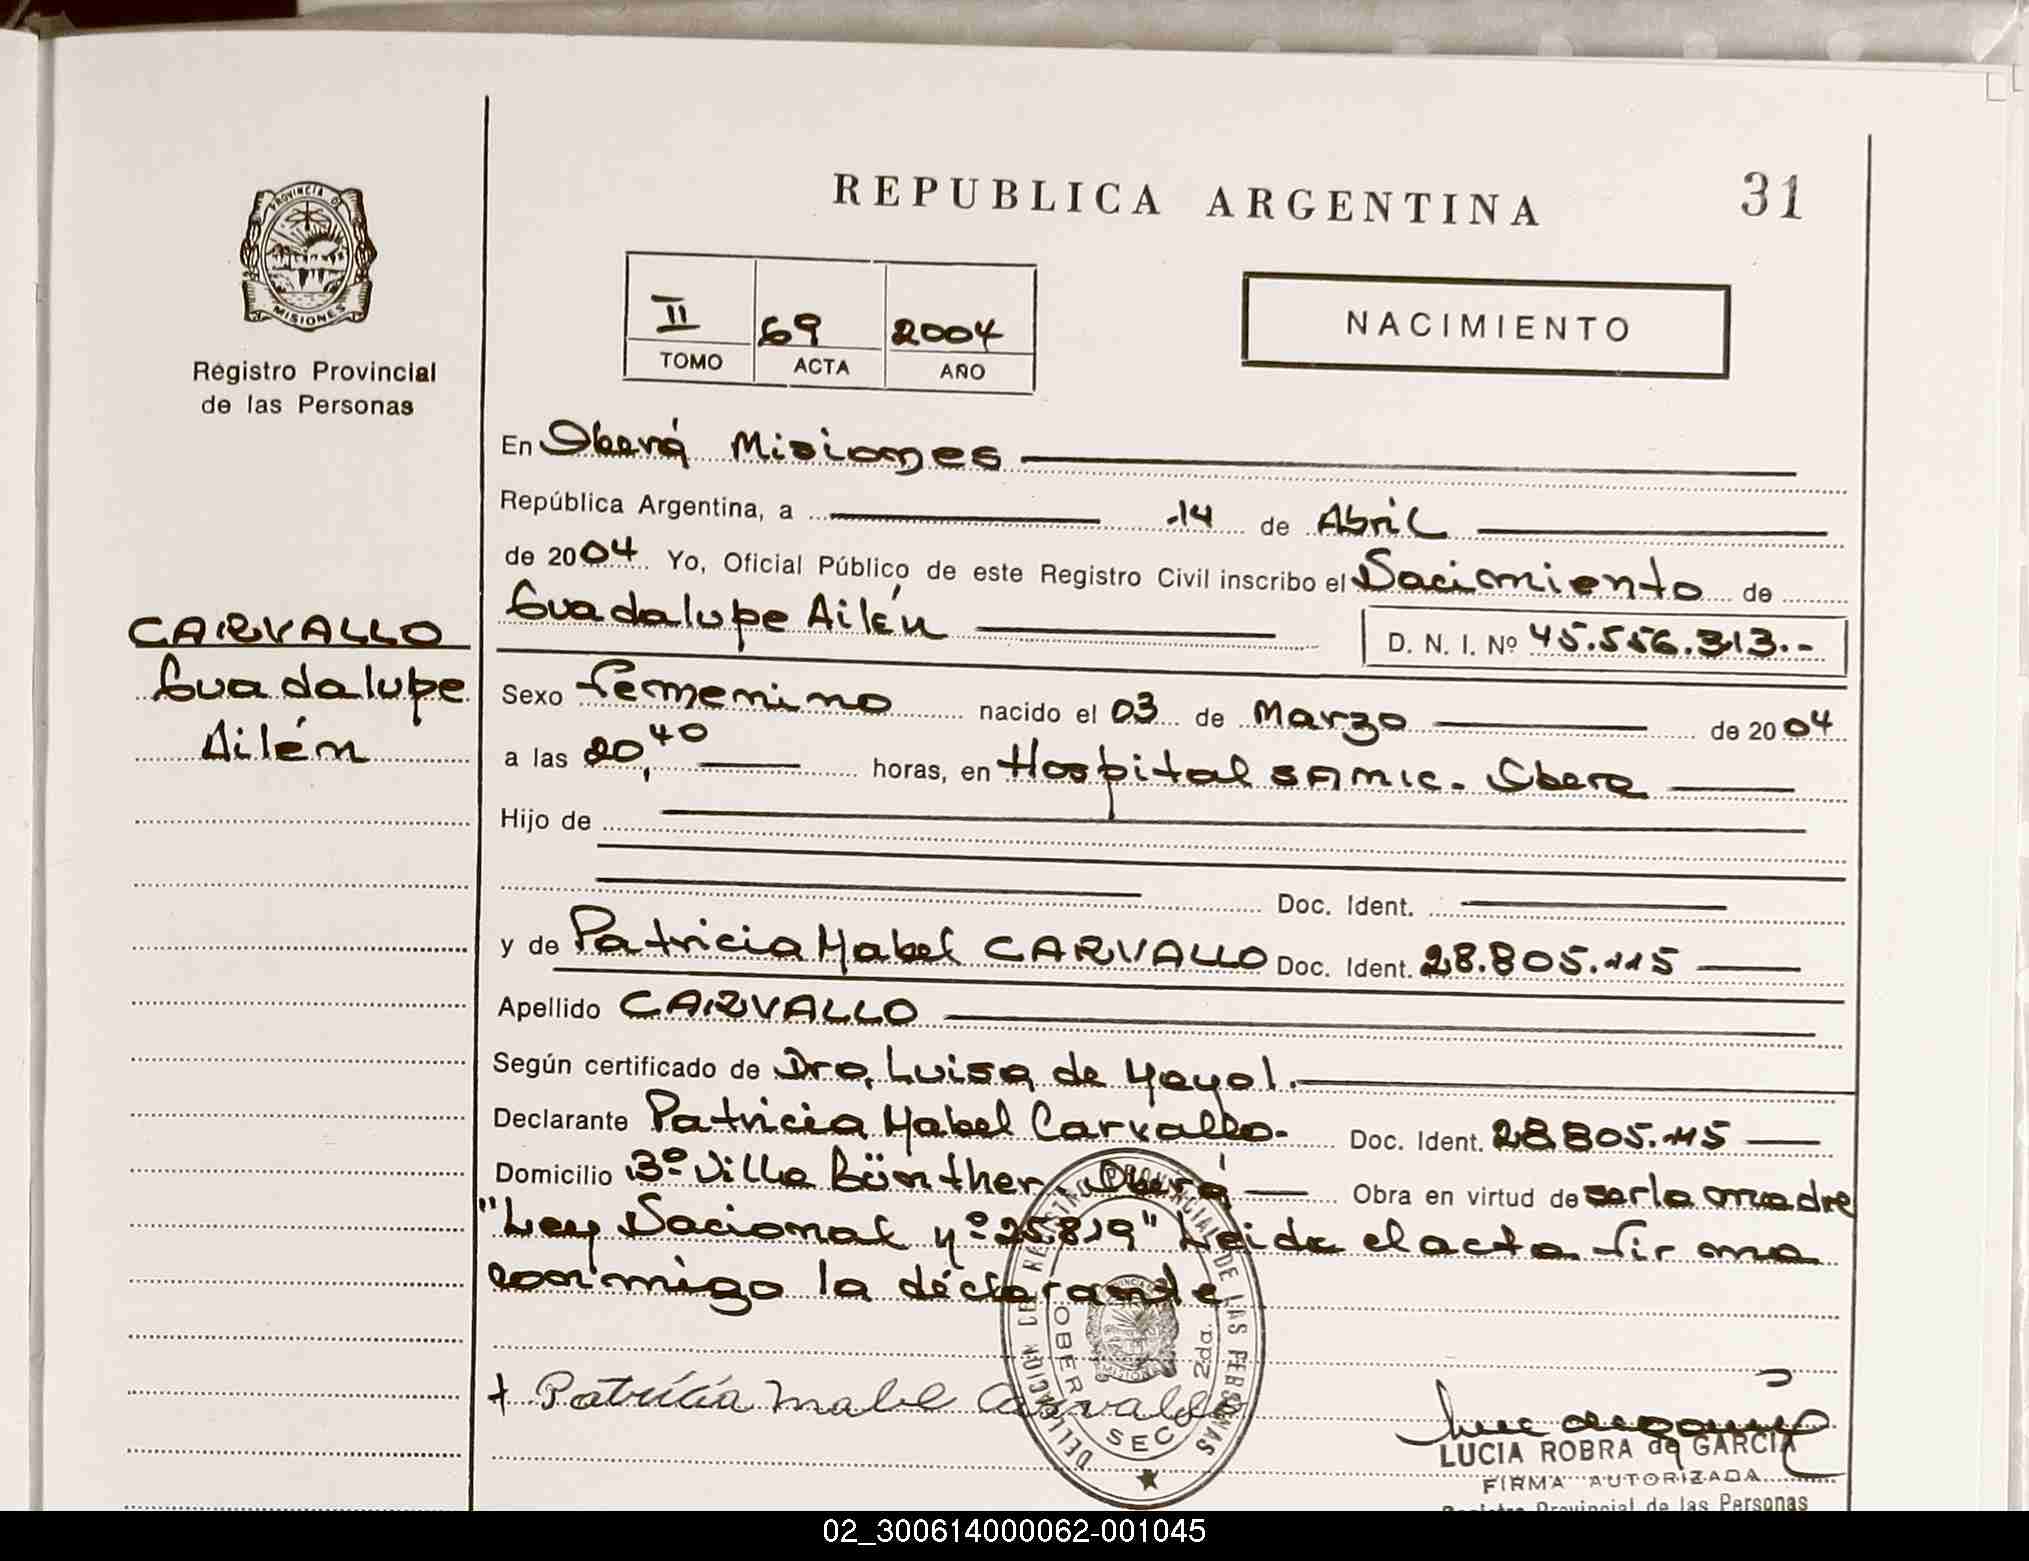 REPUBLICA ARGENTINA
31
PROVINCIA DE
MISIONES
Registro Provincial
de las Personas
II 69 2004
TOMO ACTA AÑO
NACIMIENTO
CARVALLO
Guadalupe
Ailén
En Oberá Misiones
República Argentina, a 14 de Abril
de 2004 Yo, Oficial Público de este Registro Civil inscribo el Nacimiento de
Guadalupe Ailén D. N. I. Nº 45.556.313.-
Sexo femenino nacido el 03 de Marzo de 2004
a las 20,40 horas, en Hospital SAMIC. Obera
Hijo de
Doc. Ident.
y de Patricia Mabel CARVALLO Doc. Ident. 28.805.115
Apellido CARVALLO
Según certificado de Dra, Luisa de
Declarante Patricia Mabel Carvallo. Doc. Ident. 28.805.115
Domicilio Bº Villa Günther. Oberá Obra en virtud de ser la madre
"Ley Nacional Nº 25.819" Leida el acta firma
conmigo la declarante
DELEGACION DEL REGISTRO PROVINCIAL DE LAS PERSONAS
OBERA SECC 2da.
Patricia Mabel Carvallo
LUCIA ROBRA de GARCIA
FIRMA AUTORIZADA
Registro Provincial de las Personas
02_300614000062-001045